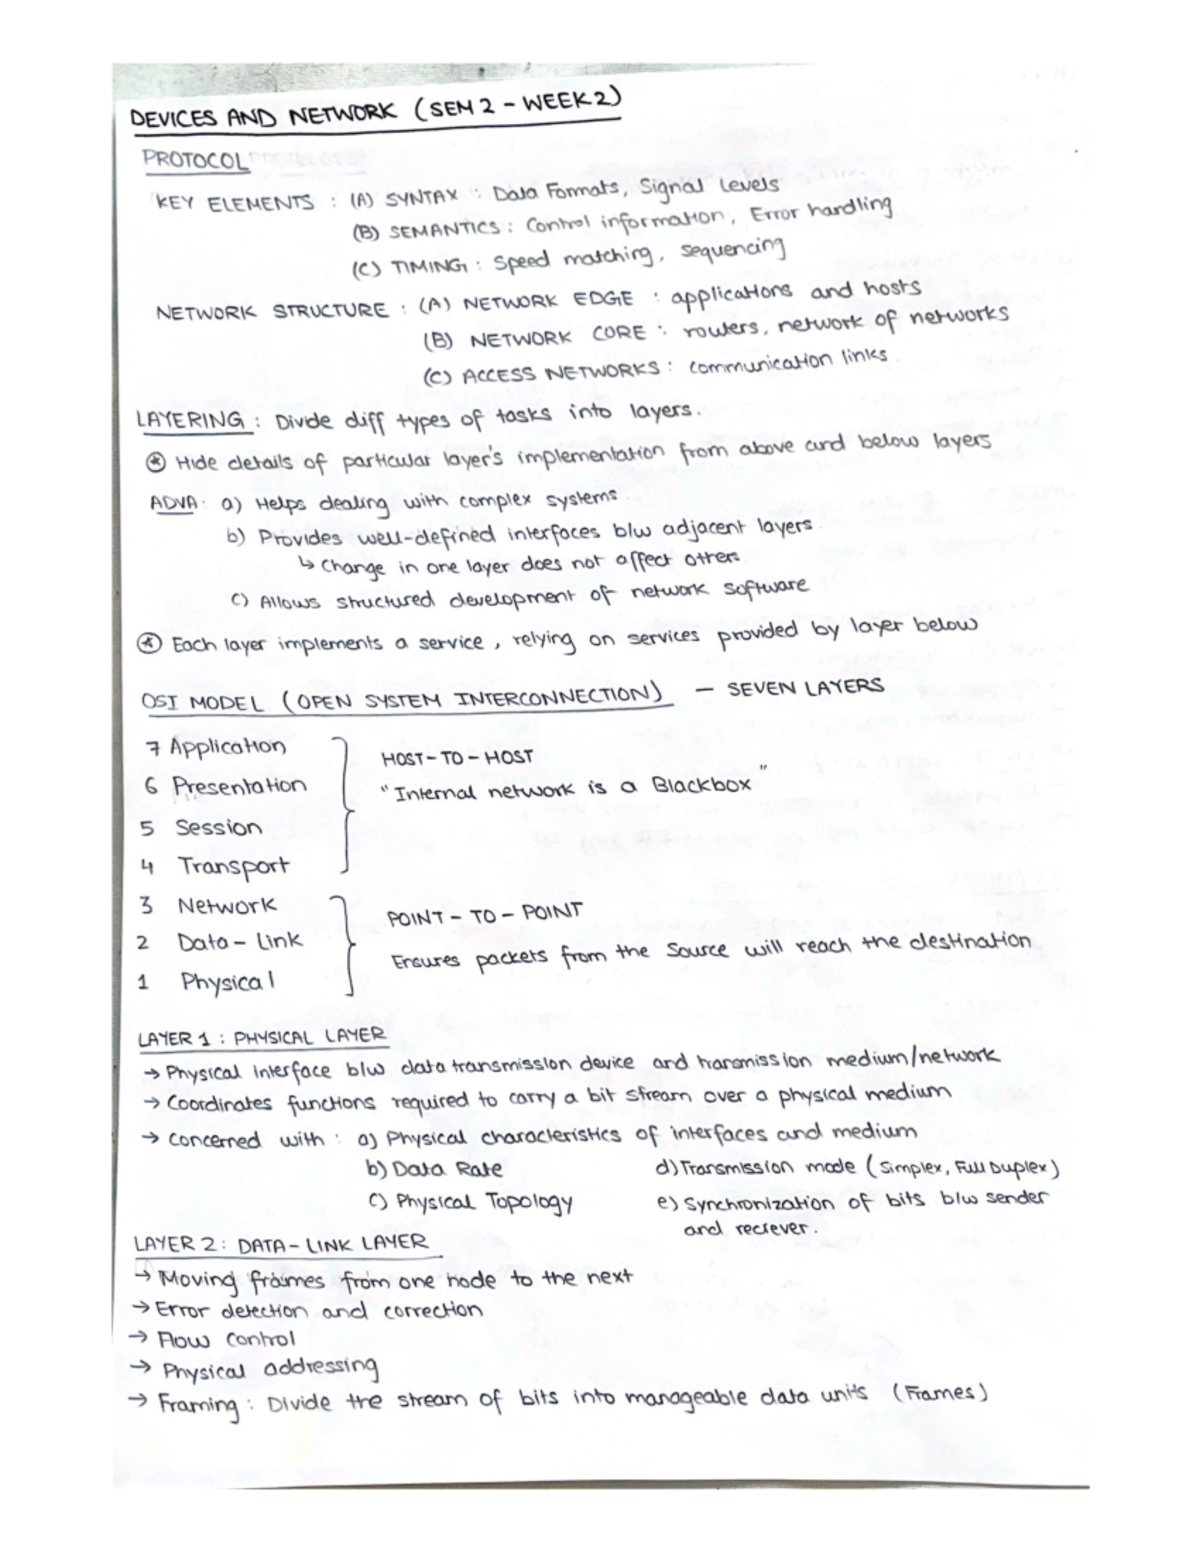 DEVICES AND NETWORK (SEM 2 - WEEK 2)
PROTOCOL
KEY ELEMENTS : (A) SYNTAX : Data Formats, Signal Levels
(B) SEMANTICS : Control information, Error handling
(C) TIMING : Speed matching, sequencing
NETWORK STRUCTURE : (A) NETWORK EDGE : applications and hosts
(B) NETWORK CORE : routers, network of networks
(C) ACCESS NETWORKS : communication links.
LAYERING : Divide diff types of tasks into layers.
* Hide details of particular layer's implementation from above and below layers
ADVA : a) Helps dealing with complex systems.
b) Provides well-defined interfaces b/w adjacent layers
↳ Change in one layer does not affect others
c) Allows structured development of network software
* Each layer implements a service, relying on services provided by layer below
OSI MODEL (OPEN SYSTEM INTERCONNECTION) - SEVEN LAYERS
7 Application
HOST-TO-HOST
6 Presentation
"Internal network is a Blackbox"
5 Session
4 Transport
3 Network
POINT - TO - POINT
2 Data-Link
Ensures packets from the source will reach the destination
1 Physical
LAYER 1 : PHYSICAL LAYER
→ Physical interface b/w data transmission device and transmission medium/network
→ Coordinates functions required to carry a bit stream over a physical medium
→ Concerned with : a) Physical characteristics of interfaces and medium
b) Data Rate d) Transmission mode (Simplex, Full Duplex)
c) Physical Topology e) Synchronization of bits b/w sender
and reciever.
LAYER 2 : DATA-LINK LAYER
→ Moving frames from one node to the next
→ Error detection and correction
→ Flow control
→ Physical addressing
→ Framing : Divide the stream of bits into manageable data units (Frames)